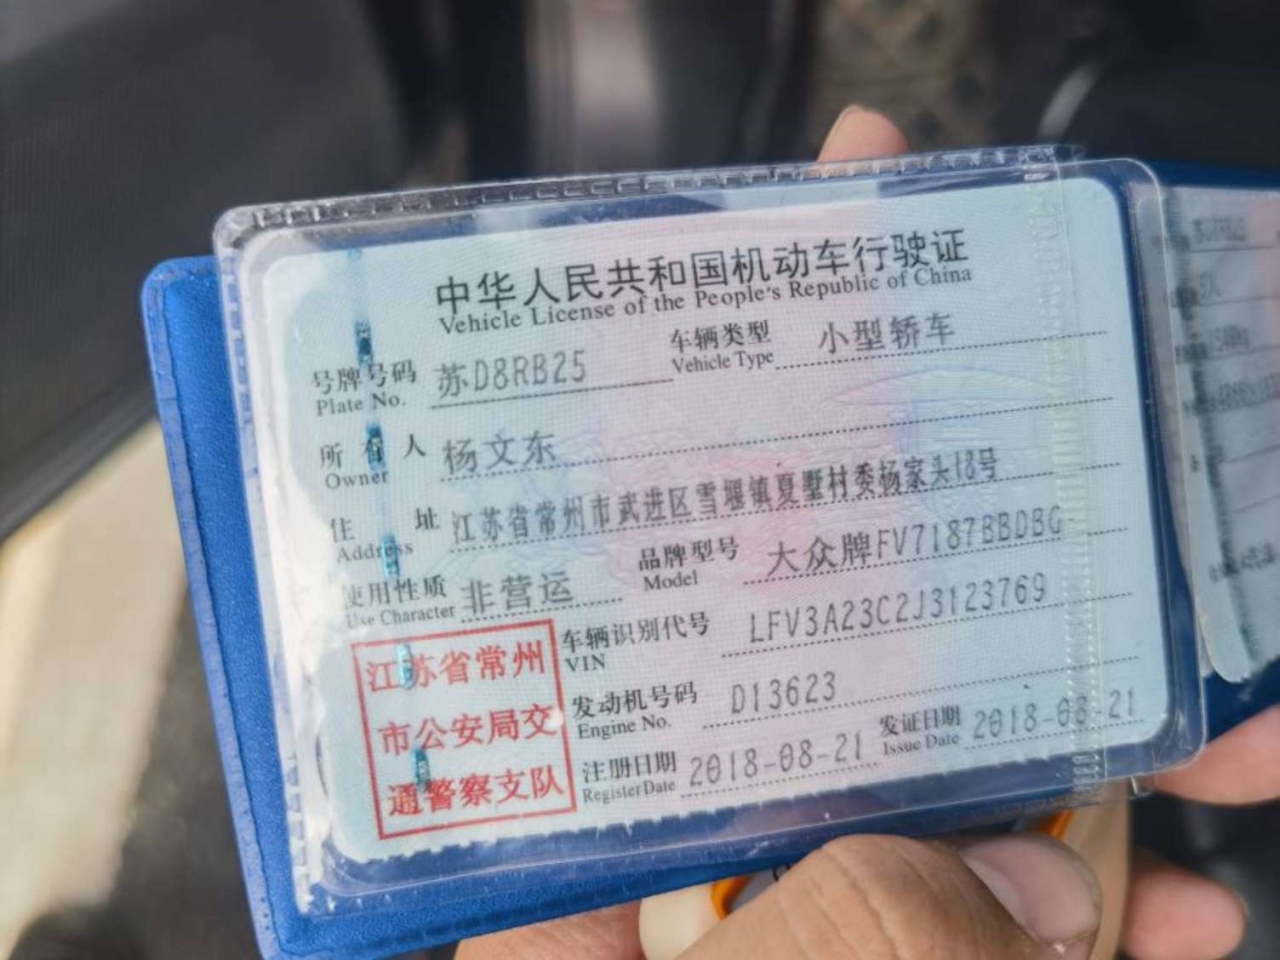 中华人民共和国机动车行驶证
Vehicle License of the People's Republic of China
号牌号码 苏D8RB25 车辆类型 小型轿车
Plate No. Vehicle Type
所有人 杨文东
Owner
住址 江苏省常州市武进区雪堰镇夏墅村委杨家头18号
Address
使用性质 非营运 品牌型号 大众牌FV7187BBDBG
Use Character Model
江苏省常州
市公安局交
通警察支队
车辆识别代号 LFV3A23C2J3123769
VIN
发动机号码 D13623
Engine No.
注册日期 2018-08-21 发证日期 2018-08-21
Register Date Issue Date